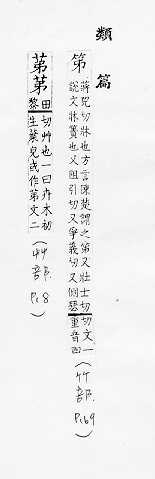 類篇
笫
蔣兕切牀也方言陳楚謂之笫又壯士切文一
說文牀簀也又阻引切又爭義切又側瑟重音四
(竹部 P.169)
苐苐
田切艸也一曰卉木初
黎生葉皃或作苐文二
(艸部 P.18)